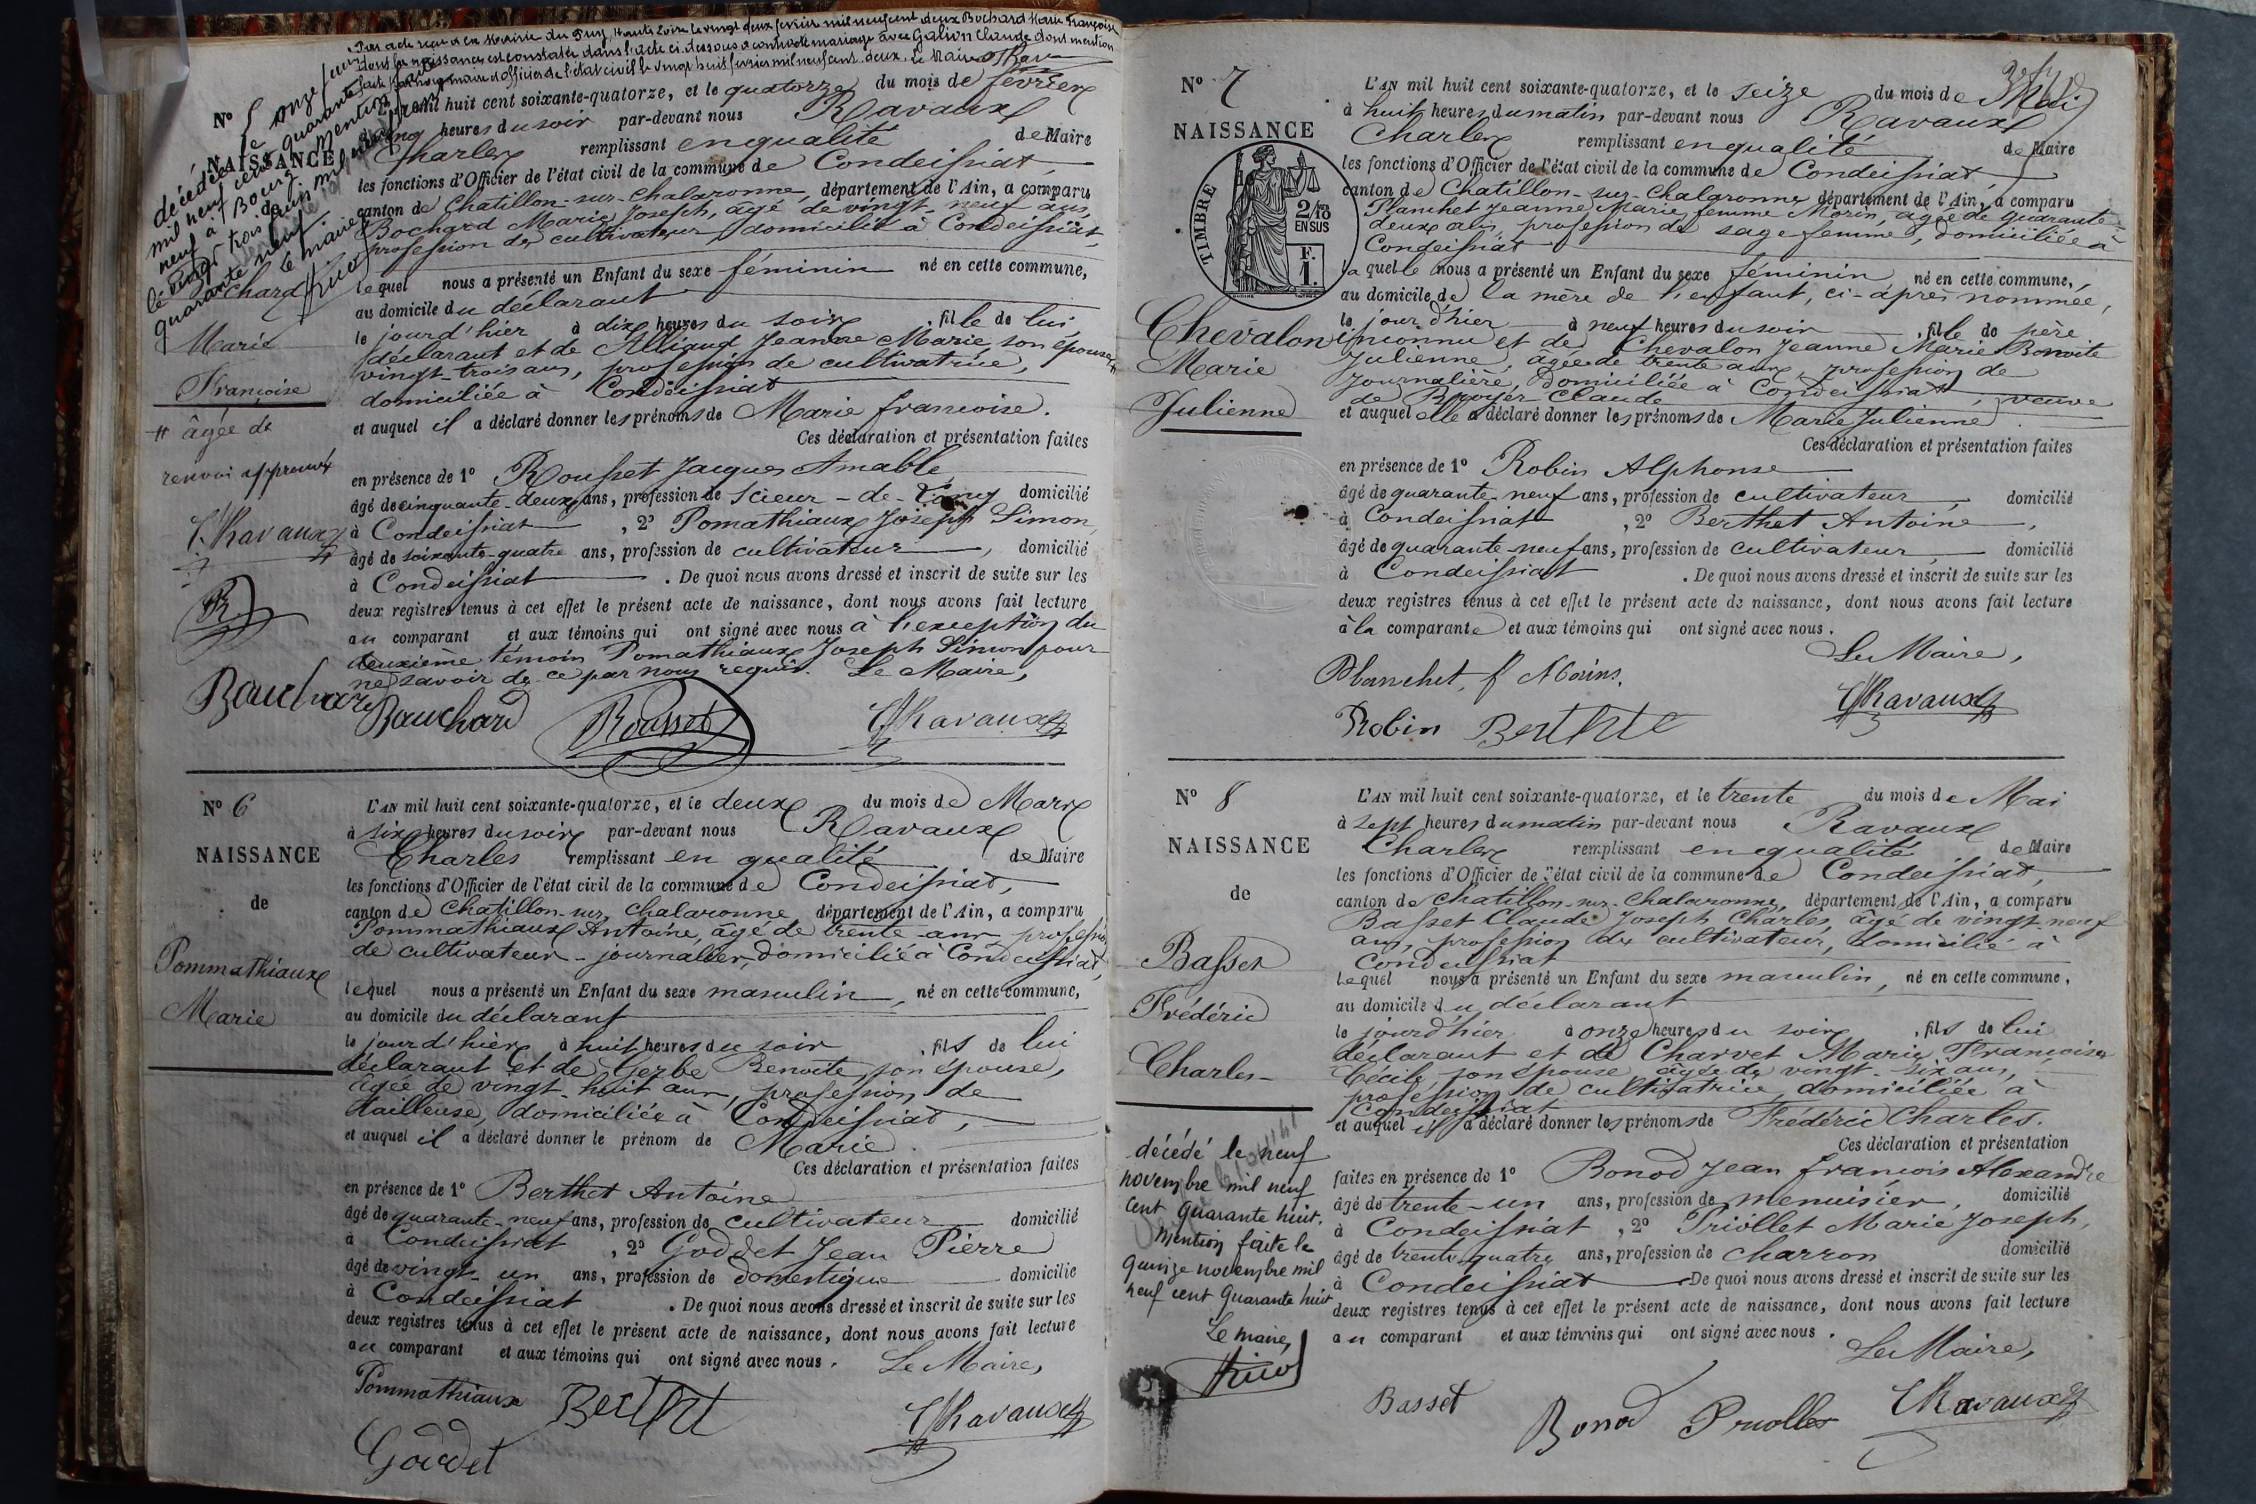 Par acte reçu à la Mairie du Puy, Haute Loire le vingt deux février mil neuf cent deux Bochard Marie Françoise
dont la naissance est constatée dans l'acte ci-dessous a contracté mariage avec Galion Claude dont mention
faite par nous maire et officier de l'état civil le vingt huit février mil neuf cent deux. Le Maire Ravaux
N° 5
NAISSANCE
décédée le onze
mil neuf cent quarante
neuf à Bourg
mention
le vingt trois
quarante neuf. Le maire
Bochard
Marie
Françoise
# âgée de
renvoi approuvé
C. Ravaux
R
L'AN mil huit cent soixante-quatorze, et le quatorze du mois de février
à cinq heures du soir par-devant nous Ravaux
Charles remplissant en qualité de Maire
les fonctions d'Officier de l'état civil de la commune de Condeissiat,
canton de Chatillon-sur-Chalaronne, département de l'Ain, a comparu
Bochard Marie Joseph, âgé de vingt-neuf ans,
profession de cultivateur, domicilié à Condeissiat,
lequel nous a présenté un Enfant du sexe féminin né en cette commune,
au domicile du déclarant
le jour d'hier à dix heures du soir, fille de lui
déclarant et de Alliaud Jeanne Marie, son épouse, #
vingt-trois ans, profession de cultivatrice,
domiciliée à Condeissiat
et auquel il a déclaré donner les prénoms de Marie françoise.
Ces déclaration et présentation faites
en présence de 1° Rousset Jacques Amable
âgé de cinquante-deux ans, profession de Scieur-de-Long domicilié
à Condeissiat, 2° Pomathiaux Joseph Simon,
âgé de soixante-quatre ans, profession de cultivateur, domicilié
à Condeissiat. De quoi nous avons dressé et inscrit de suite sur les
deux registres tenus à cet effet le présent acte de naissance, dont nous avons fait lecture
au comparant et aux témoins qui ont signé avec nous à l'exception du
deuxième témoin Pomathiaux Joseph Simon pour
ne savoir de ce par nous requis. Le Maire,
Bauchard Bauchard Rousset C. Ravaux
N° 6
NAISSANCE
de
Pommathiaux
Marie
L'AN mil huit cent soixante-quatorze, et le deux du mois de Mars
à six heures du soir par-devant nous Ravaux
Charles remplissant en qualité de Maire
les fonctions d'Officier de l'état civil de la commune de Condeissiat,
canton de Chatillon-sur-Chalaronne, département de l'Ain, a comparu
Pommathiaux Antoine, âgé de trente ans, profession
de cultivateur-journalier, domicilié à Condeissiat,
lequel nous a présenté un Enfant du sexe masculin, né en cette commune,
au domicile du déclarant
le jour d'hier à huit heures du soir, fils de lui
déclarant et de Gerbe Benoite, son épouse,
âgée de vingt-huit ans, profession de
tailleuse, domiciliée à Condeissiat,
et auquel il a déclaré donner le prénom de Marie.
Ces déclaration et présentation faites
en présence de 1° Berthet Antoine
âgé de quarante-neuf ans, profession de cultivateur domicilié
à Condeissiat, 2° Goddet Jean Pierre
âgé de vingt-un ans, profession de domestique domicilié
à Condeissiat. De quoi nous avons dressé et inscrit de suite sur les
deux registres tenus à cet effet le présent acte de naissance, dont nous avons fait lecture
au comparant et aux témoins qui ont signé avec nous. Le Maire,
Pommathiaux Berthet C. Ravaux
Goddet
N° 7
NAISSANCE
TIMBRE
2/10 EN SUS
F. 1.
Chevalon
Marie
Julienne
L'AN mil huit cent soixante-quatorze, et le seize du mois de Mai
à huit heures du matin par-devant nous Ravaux
Charles remplissant en qualité de Maire
les fonctions d'Officier de l'état civil de la commune de Condeissiat,
canton de Chatillon-sur-Chalaronne, département de l'Ain, a comparu
Planchet Jeanne Marie femme Morin, âgée de quarante-
deux ans, profession de sage femme, domiciliée à
Condeissiat
laquelle nous a présenté un Enfant du sexe féminin, né en cette commune,
au domicile de la mère de l'enfant, ci-après nommée,
le jour d'hier à neuf heures du soir, fille de père
inconnu et de Chevalon Jeanne Marie Benoite
Julienne, âgée de trente ans, profession de
journalière, domiciliée à Condeissiat, veuve
de Broyer Claude
et auquel elle a déclaré donner les prénoms de Marie Julienne.
Ces déclaration et présentation faites
en présence de 1° Robin Alphonse
âgé de quarante-neuf ans, profession de cultivateur, domicilié
à Condeissiat, 2° Berthet Antoine,
âgé de quarante-neuf ans, profession de cultivateur, domicilié
à Condeissiat. De quoi nous avons dressé et inscrit de suite sur les
deux registres tenus à cet effet le présent acte de naissance, dont nous avons fait lecture
à la comparante et aux témoins qui ont signé avec nous.
Le Maire,
Planchet, f Morins.
C. Ravaux
Robin Berthet
N° 8
NAISSANCE
de
Basset
Frédéric
Charles
décédé le neuf
novembre mil neuf
cent quarante huit.
mention faite le
quinze novembre mil
neuf cent quarante huit
Le maire,
L'AN mil huit cent soixante-quatorze, et le trente du mois de Mai
à sept heures du matin par-devant nous Ravaux
Charles remplissant en qualité de Maire
les fonctions d'Officier de l'état civil de la commune de Condeissiat,
canton de Chatillon-sur-Chalaronne, département de l'Ain, a comparu
Basset Claude Joseph Charles, âgé de vingt-neuf
ans, profession de cultivateur, domicilié à
Condeissiat
lequel nous a présenté un Enfant du sexe masculin, né en cette commune,
au domicile du déclarant
le jour d'hier à onze heures du soir, fils de lui
déclarant et de Charvet Marie Françoise
Cécile, son épouse âgée de vingt-six ans,
profession de cultivatrice, domiciliée à
Condeissiat
et auquel il a déclaré donner les prénoms de Frédéric Charles.
Ces déclaration et présentation
faites en présence de 1° Bonod Jean françois Alexandre
âgé de trente-un ans, profession de menuisier, domicilié
à Condeissiat, 2° Priollet Marie Joseph,
âgé de trente-quatre ans, profession de charron domicilié
à Condeissiat De quoi nous avons dressé et inscrit de suite sur les
deux registres tenus à cet effet le présent acte de naissance, dont nous avons fait lecture
au comparant et aux témoins qui ont signé avec nous.
Le Maire,
Basset Bonod Priollet C. Ravaux